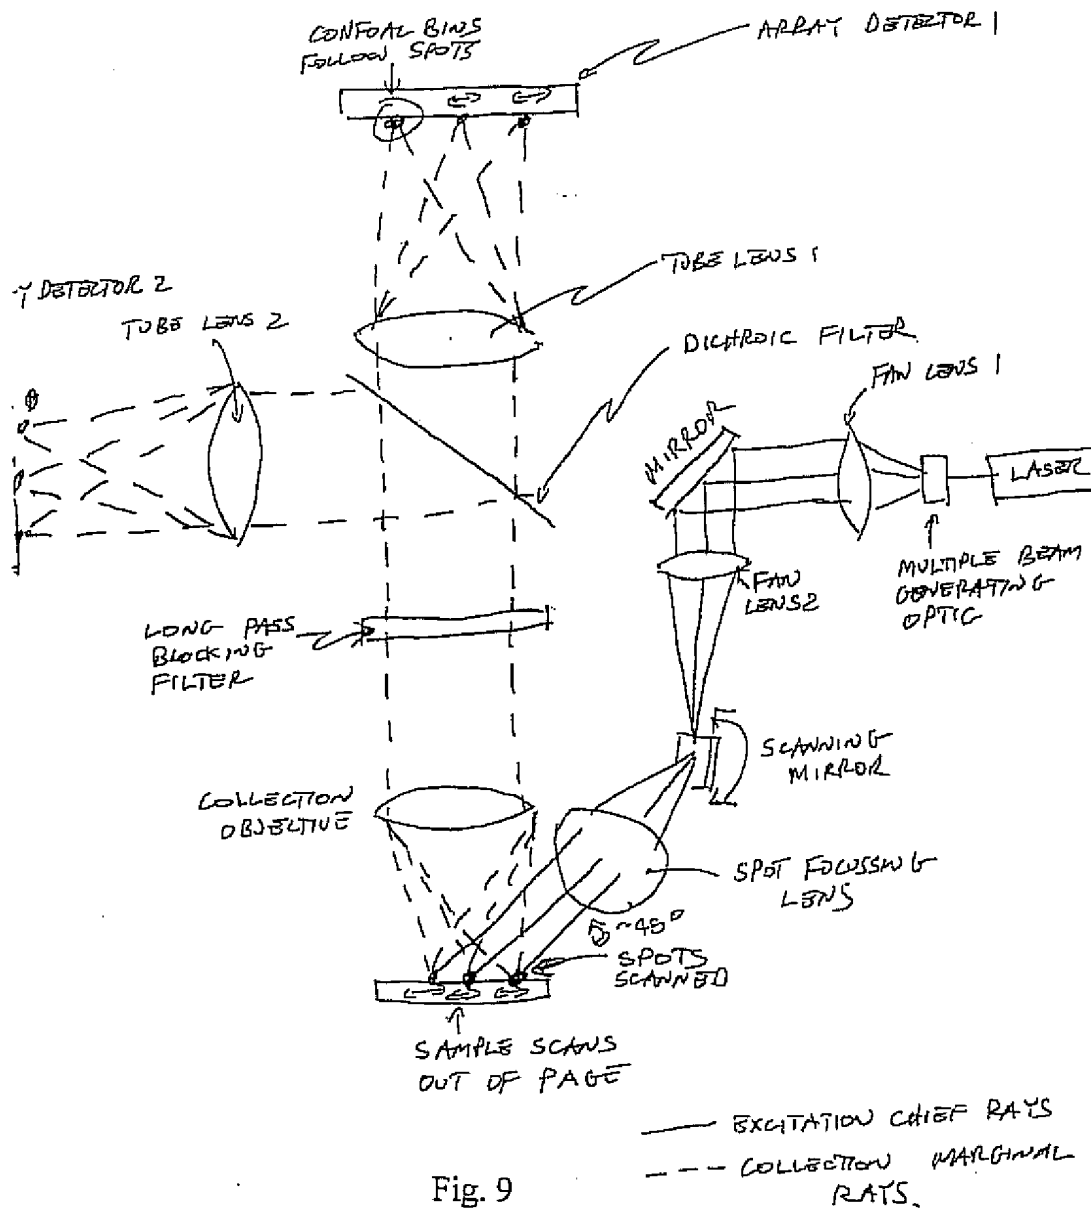 CONFOAL BINS
FOLLOW SPOTS
ARRAY DETECTOR 1
TUBE LENS 1
Y DETECTOR 2
TUBE LENS 2
DICHROIC FILTER
FAN LENS 1
MIRROR
LASER
FAN
LENS2
MULTIPLE BEAM
GENERATING
OPTIC
LONG PASS
BLOCKING
FILTER
SCANNING
MIRROR
COLLECTION
OBJECTIVE
SPOT FOCUSSING
LENS
~45°
SPOTS
SCANNED
SAMPLE SCANS
OUT OF PAGE
EXCITATION CHIEF RAYS
COLLECTION MARGINAL
RAYS.
Fig. 9